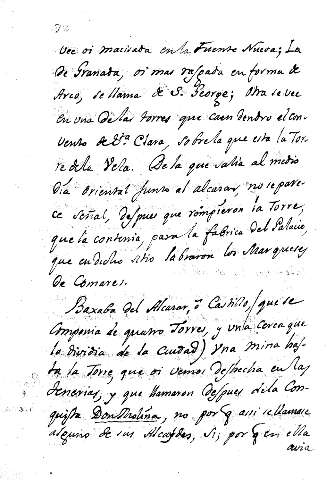 vee oi macisada en la Fuente Nueva; La
de Granada, oi mas rasgada en forma de
Arco, se llama de S. George; Otra se vee
en una de las torres que caen dentro el con
vento de Sta Clara, sobre la que esta la Tor
re de la Vela. De la que salia al medio
dia oriental junto al alcasar, no se pare
ce señal, despues que rompieron la Torre,
que la contenia, para la fabrica del Palacio,
que en dicho sitio labraron los Marqueses
de Comares.
Baxaba del Alcazar, ó Castillo, (que se
Componia de quatro Torres, y una cerca que
la dividia de la Ciudad) Una mina has
ta la Torre, que oi vemos desecha en las
tenerias, y que llamaron despues de la Con
quista Don Molina, no porq assi se llamase
alguno de sus Alcaydes, si, porq en ella
avia